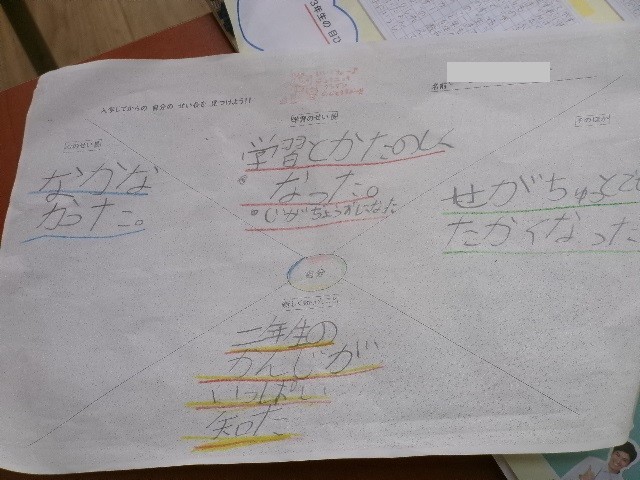 3年生の
入学してからの 自分の せい長を 見つけよう!!
名前
心のせい長
なかな
かった。
学習のせい長
学習とかたのし
なった。
じがじょうずになた
せがちゅっとで
たかくなった
自分
二年生の
かんじが
いっぱい
知た